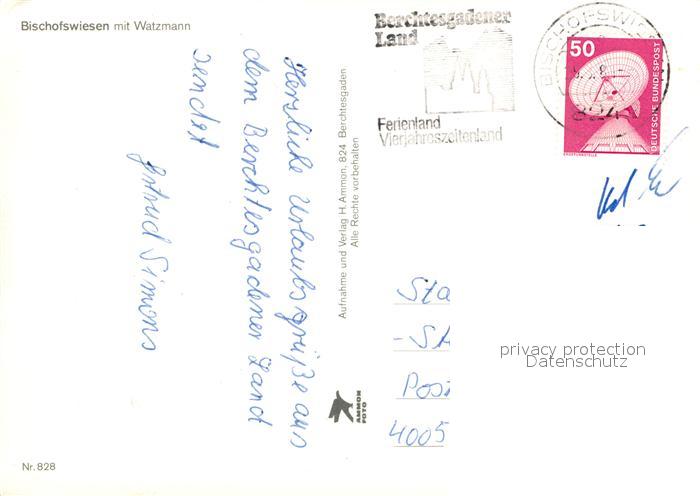 Bischofswiesen mit Watzmann
Herzliche Urlaubsgrüße aus
dem Berchtesgadener Land
sendet
Gertrud Simons
Aufnahme und Verlag H. Ammon, 824 Berchtesgaden
Alle Rechte vorbehalten
AMMON
FOTO
Berchtesgadener
Land
Ferienland
Vierjahreszeitenland
BISCHOFSWIES
824
50
DEUTSCHE BUNDESPOST
ERDEFUNKSTELLE
Sta
-St
Post
4005
privacy protection
Datenschutz
Nr. 828